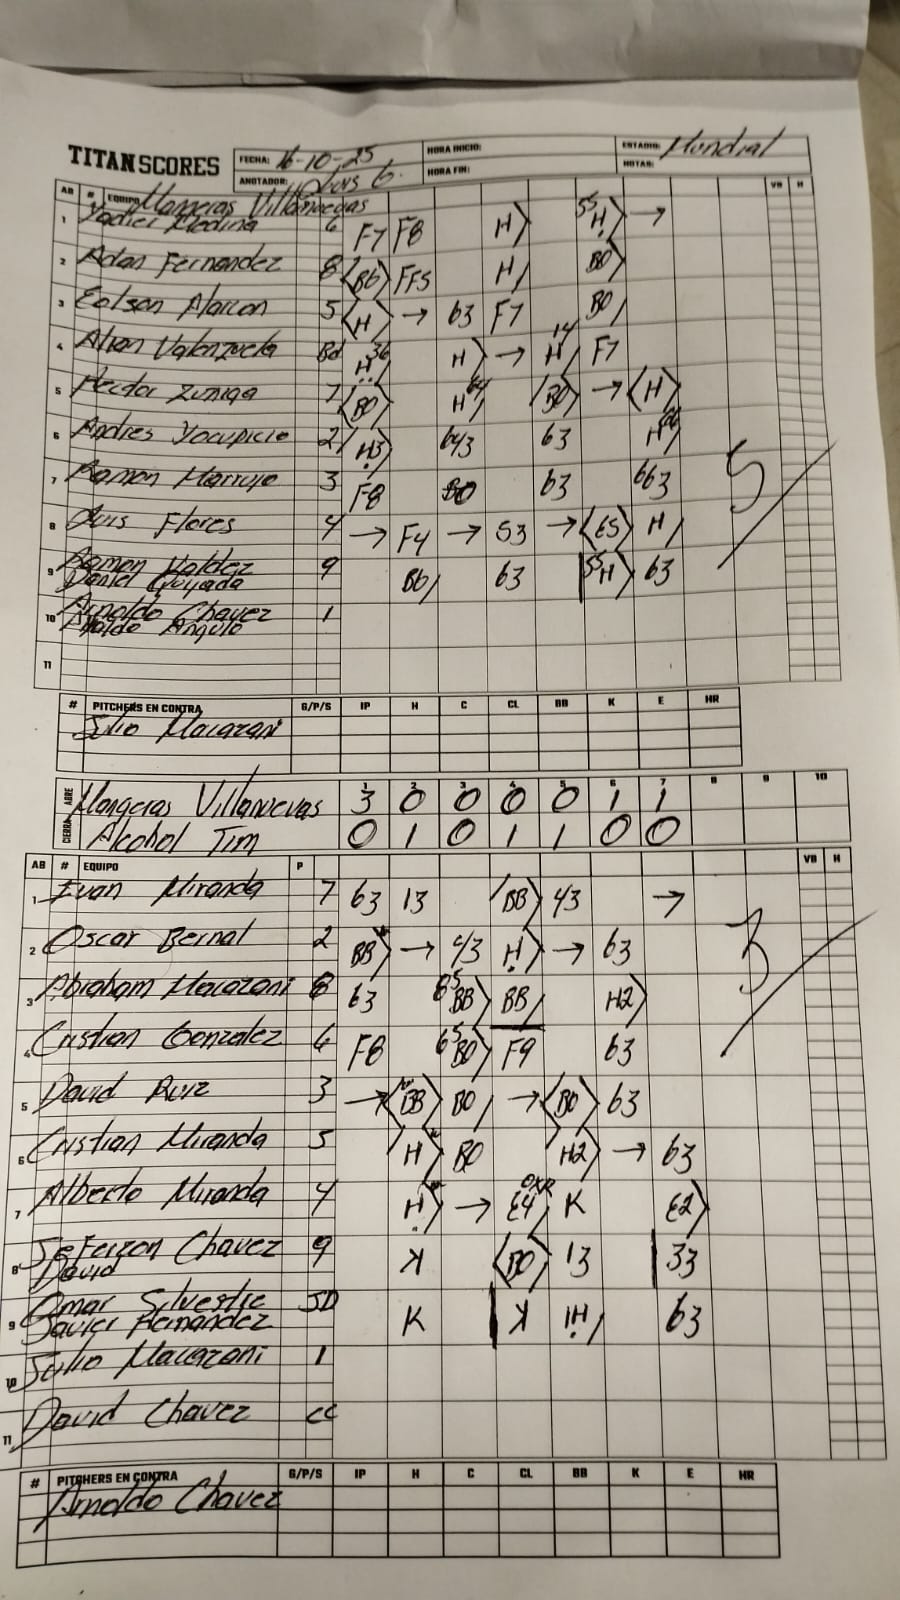 TITAN SCORES
FECHA: 16-10-25 HORA INICIO: ESTADIO: Mundial
ANOTADOR: Luis G. HORA FIN: NOTAS:
AB # EQUIPO Mangeras Villanuevas VB H
1 Yadier Medina 6 F7 F8 H 55 H →
2 Adan Fernandez 8 BB FF5 H BO
3 Edson Alarcon 5 H → 63 F7 BO
4 Alian Valenzuela Bd 36 H H → 14 H F7
5 Hector Zuniga 7 BO H 64 BO → H
6 Andres Yocupicio 2 H3 643 63 H 66
7 Ramon Marrujo 3 F8 BO 63 663 5
8 Luis Flores 4 → F4 → 53 → E5 H
9 Ramon Valdez 9 BB 63 55 H 63
Daniel Quijada
10 Arnoldo Chavez 1
Angulo
11
# PITCHERS EN CONTRA G/P/S IP H C CL BB K E HR
Julio Macazani
1 2 3 4 5 6 7 8 9 10
ABRE Mangeras Villanuevas 3 0 0 0 0 1 1
CIERRA Alcohol Tim 0 1 0 1 1 0 0
AB # EQUIPO P VB H
1 Ivan Miranda 7 63 13 BB 43 →
2 Oscar Bernal 2 BB → 43 H → 63
3 Abraham Macazani 8 63 65 BB BB H2
4 Cristian Gonzalez 6 F8 65 BO F9 63 3
5 David Ruiz 3 → BB BO → BO 63
6 Cristian Miranda 5 H BO H2 → 63
7 Alberto Miranda 4 H → E4 K E2
8 Jeferzon Chavez 9 K BO 13 33
David
9 Omar Silvestre SD K K H1 63
Javier Hernandez
10 Julio Macazani 1
11 David Chavez CC
# PITCHERS EN CONTRA G/P/S IP H C CL BB K E HR
Arnoldo Chavez